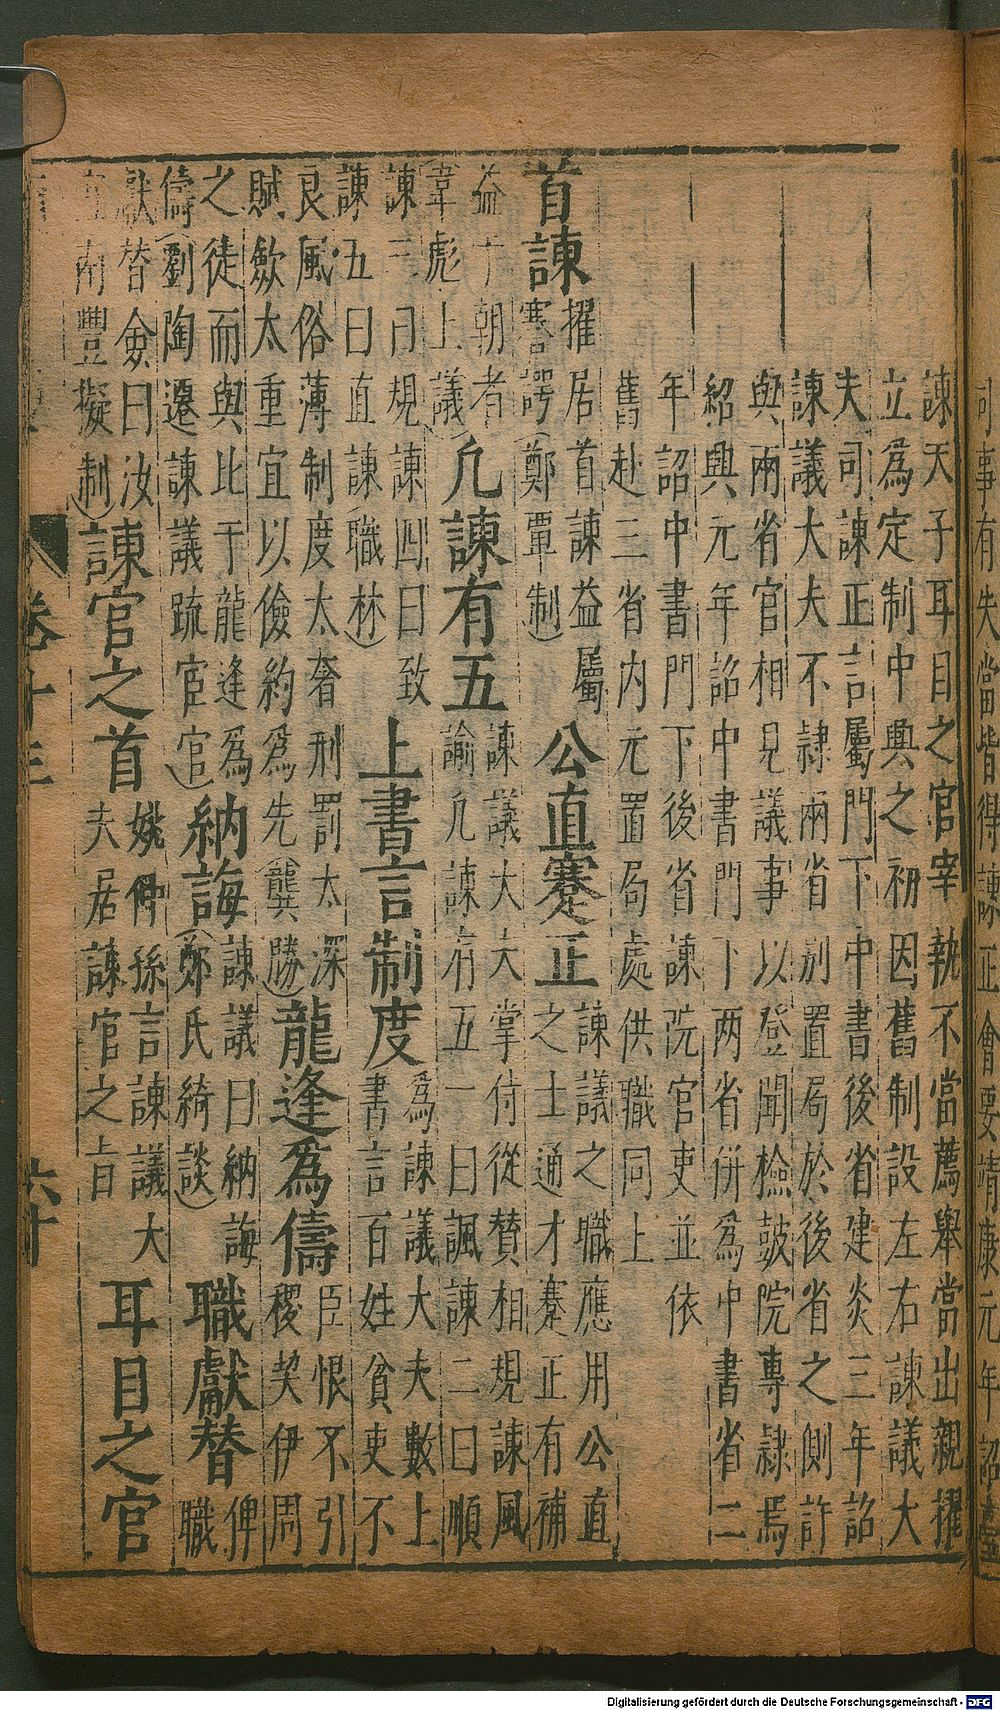 司事有失當皆得諫正會要靖康元年詔宰
諫天子耳目之官宰執不當薦舉當出親擢
立爲定制中興之初因舊制設左右諫議大
夫司諫正言屬門下中書後省建炎三年詔
諫議大夫不隷兩省别置局於後省之側許
與兩省官相見議事以登聞檢鼓院專隷焉
紹興元年詔中書門下两省併爲中書省二
年詔中書門下後省諫院官吏並依
舊赴三省内元置局處供職同上
首諫 擢居首諫益屬
謇諤(鄭覃制) 公直蹇正 諫議之職應用公直
之士通才蹇正有補
益于朝者
韋彪上議) 凡諫有五 諫議大夫掌侍從賛相規諫風
諭凡諫有五一曰諷諫二曰順
諫三曰規諫四曰致
諫五曰直諫(職林) 上書言制度 為諫議大夫數上
書言百姓貧吏不
良風俗薄制度太奢刑罰太深
賦歛太重宜以儉約爲先(龔勝) 龍逢爲儔 臣恨不引
稷契伊周
之徒而與比于龍逢爲
儔(劉陶遷諫議疏宦官) 納誨 諫議曰納誨
(鄭氏綺談) 職獻替 俾
職
獻替僉曰汝
南豐擬制) 諫官之首 姚仲孫言諫議大
夫居諫官之首 耳目之官
卷十三 六十
Digitalisierung gefördert durch die Deutsche Forschungsgemeinschaft - DFG